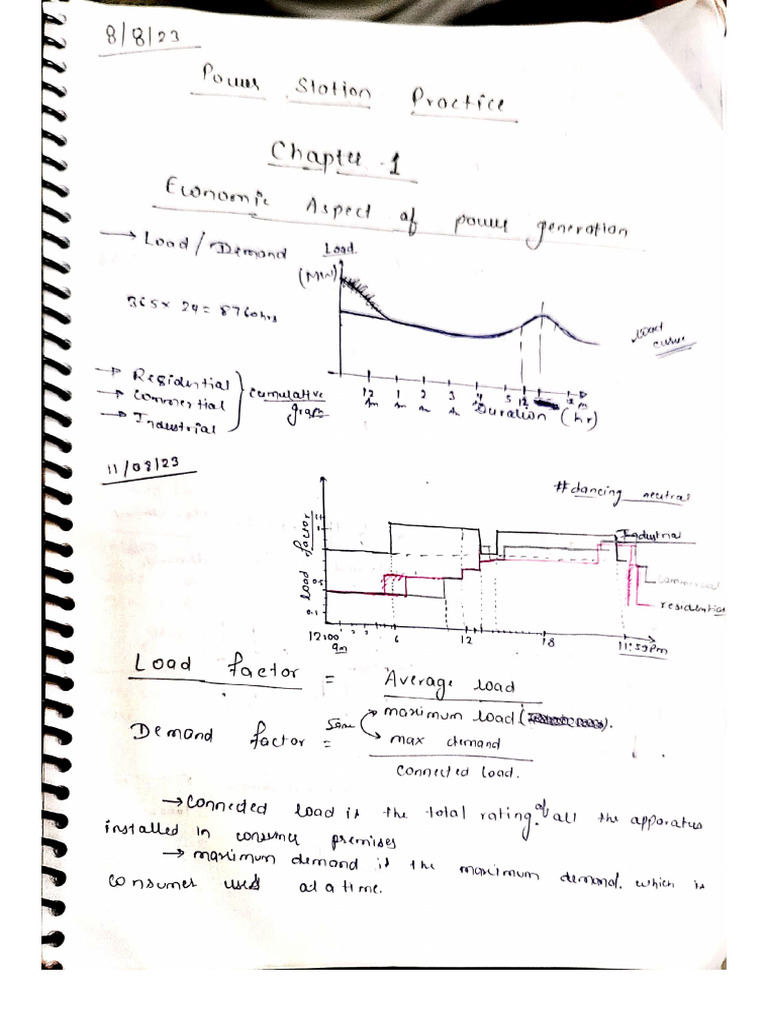 8/8/23
Power Station Practice
Chapter-1
Economic Aspect of power generation
→ Load / Demand
Load.
(MW)
365 × 24 = 8760hrs
Load curve
→ Residential
→ Commertial
→ Industrial
cumulative graph
12 Am 1 Am 2 Am 3 Am 4 5 12
Duration (hr)
11/08/23
#dancing neutral
load factor
1
0.5
0.1
Industrial
commercial
residential
12:00 am 6 12 18 11:59pm
Load factor = Average load
maximum load
Demand factor = same max demand
connected load.
→ connected load is the total rating of all the apparatus
installed in consumer premises
→ maximum demand is the maximum demand. which is
consumer used at a time.